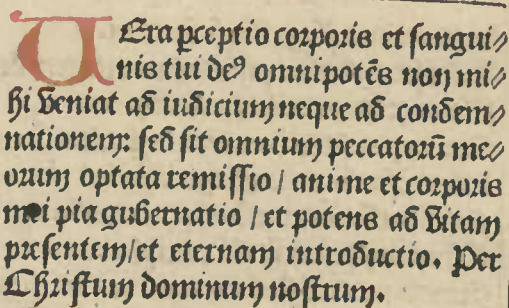 VEra ꝑceptio corporis et sangui⸗
nis tui deꝰ omnipotẽs non mi⸗
hi veniat ad iudicium neque ad condem⸗
nationem: sed sit omnium peccatorũ me⸗
orum optata remissio / anime et corporis
mei pia gubernatio / et potens ad vitam
presentem/et eternam introductio. Per
Christum dominum nostrum.